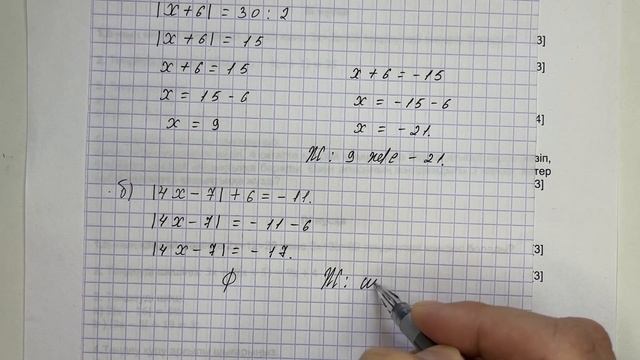 |x+6| = 30 : 2
|x+6| = 15
x+6 = 15
x = 15 - 6
x = 9
x+6 = -15
x = -15 - 6
x = -21.
Ж: 9 және -21.
б) |4x-7| + 6 = -11.
|4x-7| = -11 - 6
|4x-7| = -17.
∅ Ж:
3]
3]
4]
зіп,
тер
3]
3]
3]